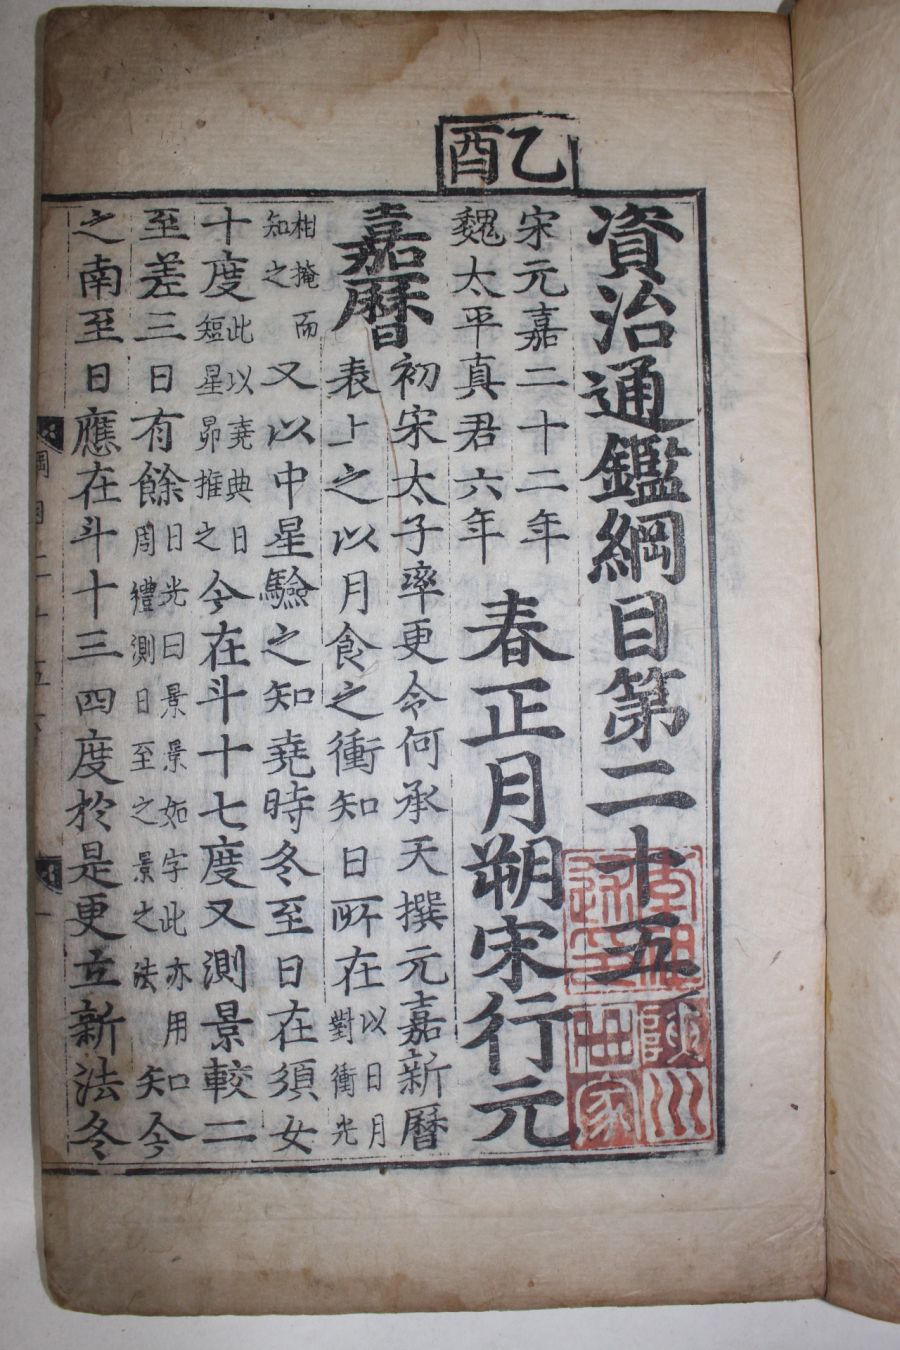 乙酉
資治通鑑綱目第二十五
宋元嘉二十二年
魏太平真君六年
春正月朔宋行元
嘉曆
初宋太子率更令何承天撰元嘉新曆
表上之以月食之衝知日所在
以日月
對衝光
相掩而
知之
又以中星驗之知堯時冬至日在須女
十度
此以堯典日
短星昴推之
今在斗十七度又測景較二
至差三日有餘
日光曰景景如字此亦用
周禮測日至之景之法
知今
之南至日應在斗十三四度於是更立新法冬